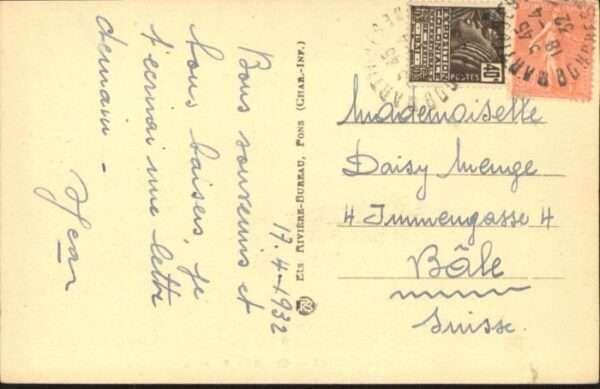 Bons souvenirs et
bons baisers, je
t'ecrirai une lettre
demain -
Jean
17.4.1932
Ets Rivière-Bureau, Pons (Char.-Inf.)
Mademoiselle
Daisy Menge
4 Immengasse 4
Bâle
Suisse.
POSTES
40c